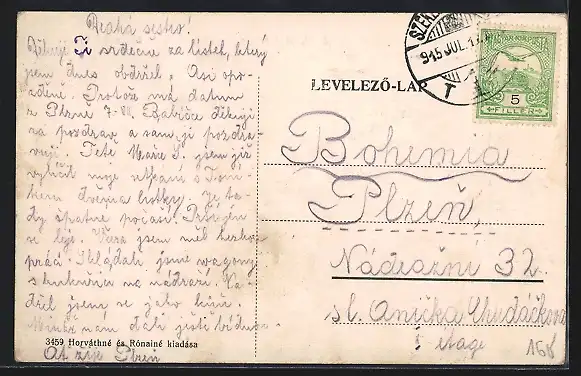 Drahá sestro!
Děkuji Ti srdečně za lístek, který
jsem dnes obdržel. Asi opo-
zděně. Protože má datum
z Plzně 7-VII. Babičce děkuji
za pozdrav a sám ji pozdra-
vuji. Tetě Máře S. jsem již
vylíčil moje setkání s Toní-
kem dvěma lístky. Je ta-
dy špatné počasí. Pršívá
se lije. Včera jsem měl hezkou
prác. Skládali jsme wagony
s kukuřicí na nádraží. Na-
dřel jsem se jako kůň.
nám dali ještě
Ať žije Plzeň
3459 Horváthné és Rónainé kiadása
LEVELEZŐ-LAP
SZÉK
915 JUL. 1
T
5
FILLÉR
Bohemia
Plzeň,
Nádražní 32.
sl. Anička Chudáčková
I etage
168